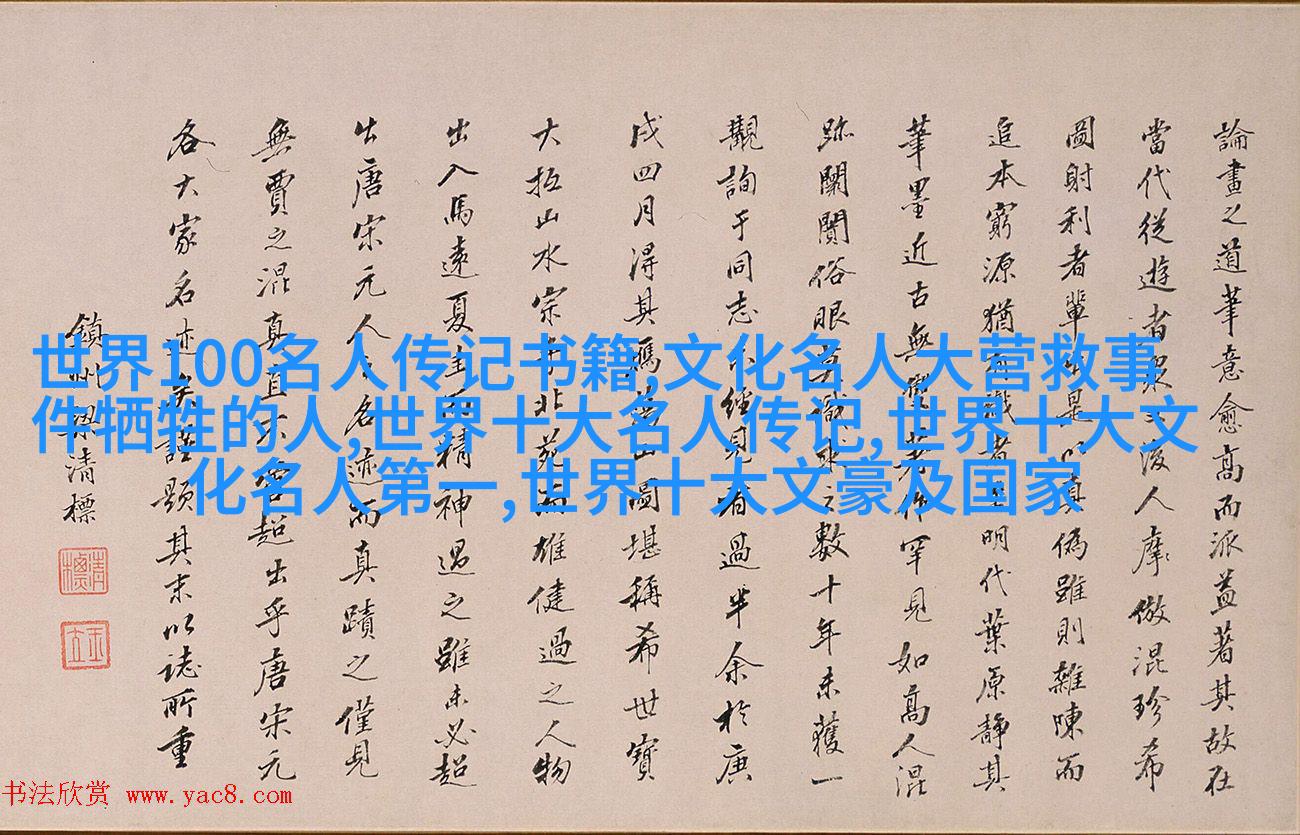 論畫之道筆意愈高而派益著其故在
當代從遊者眾後人摩倣混珍希
圖射利者輩是以真偽雖則雜陳而
追本窮源猶明代葉原靜其
筆墨近古無作罕見如高人混
跡闤闠俗眼數十年未獲一
觀詢于同志經見者過半余於庚
戌四月得其圖堪稱希世寶
大抵山水宗北苑而雄健過之人物
出入馬遠夏圭而精神過之雖未必超
出唐宋元人之名迹而真蹟之僅見
無贋之混真直欲超出乎唐宋元
各大家名迹矣謹題其末以誌所重
鎮州梁清標
清標
世界100名人传记书籍,文化名人大营救事
件牺牲的人,世界十大名人传记,世界十大文
化名人第一,世界十大文豪及国家
书法欣赏 www.yac8.com